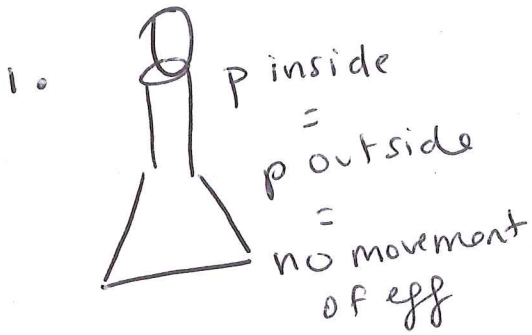 1.
p inside
=
p outside
=
no movement
of egg